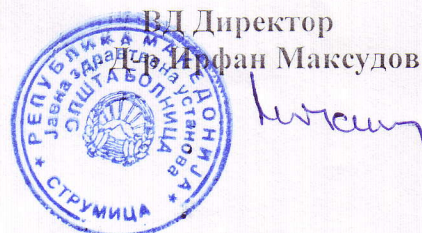 ВД Директор
Д-р Ирфан Максудов
РЕПУБЛИКА МАКЕДОНИЈА
Јавна здравствена установа
ОПШТА БОЛНИЦА
СТРУМИЦА